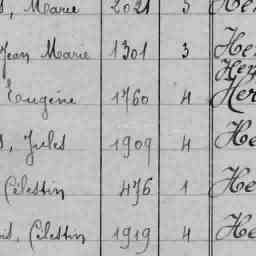 Marie 2021 5 He
Jean Marie 1301 3 He
He
Eugène 1760 4 Her
Jules 1909 4 He
Célestin 476 1 He
Célestin 1919 4 He